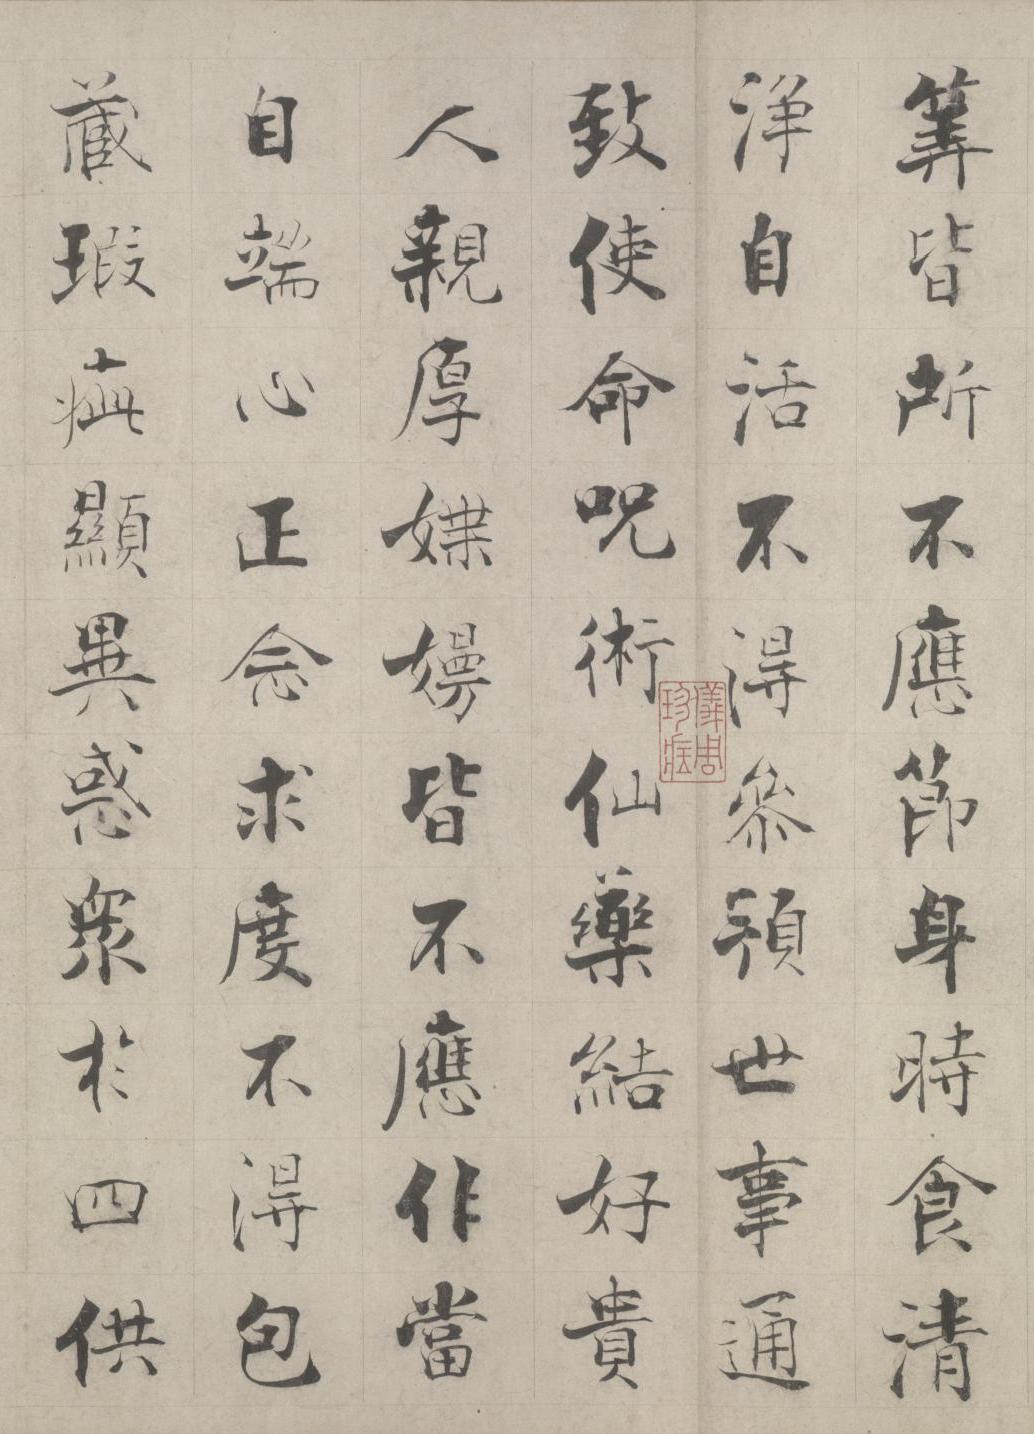 筭皆所不應節身時食清
淨自活不得參預世事通
致使命呪術仙藥結好貴
人親厚媟嫚皆不應作當
自端心正念求度不得包
藏瑕疵顯異惑衆於四供
儀周珍藏